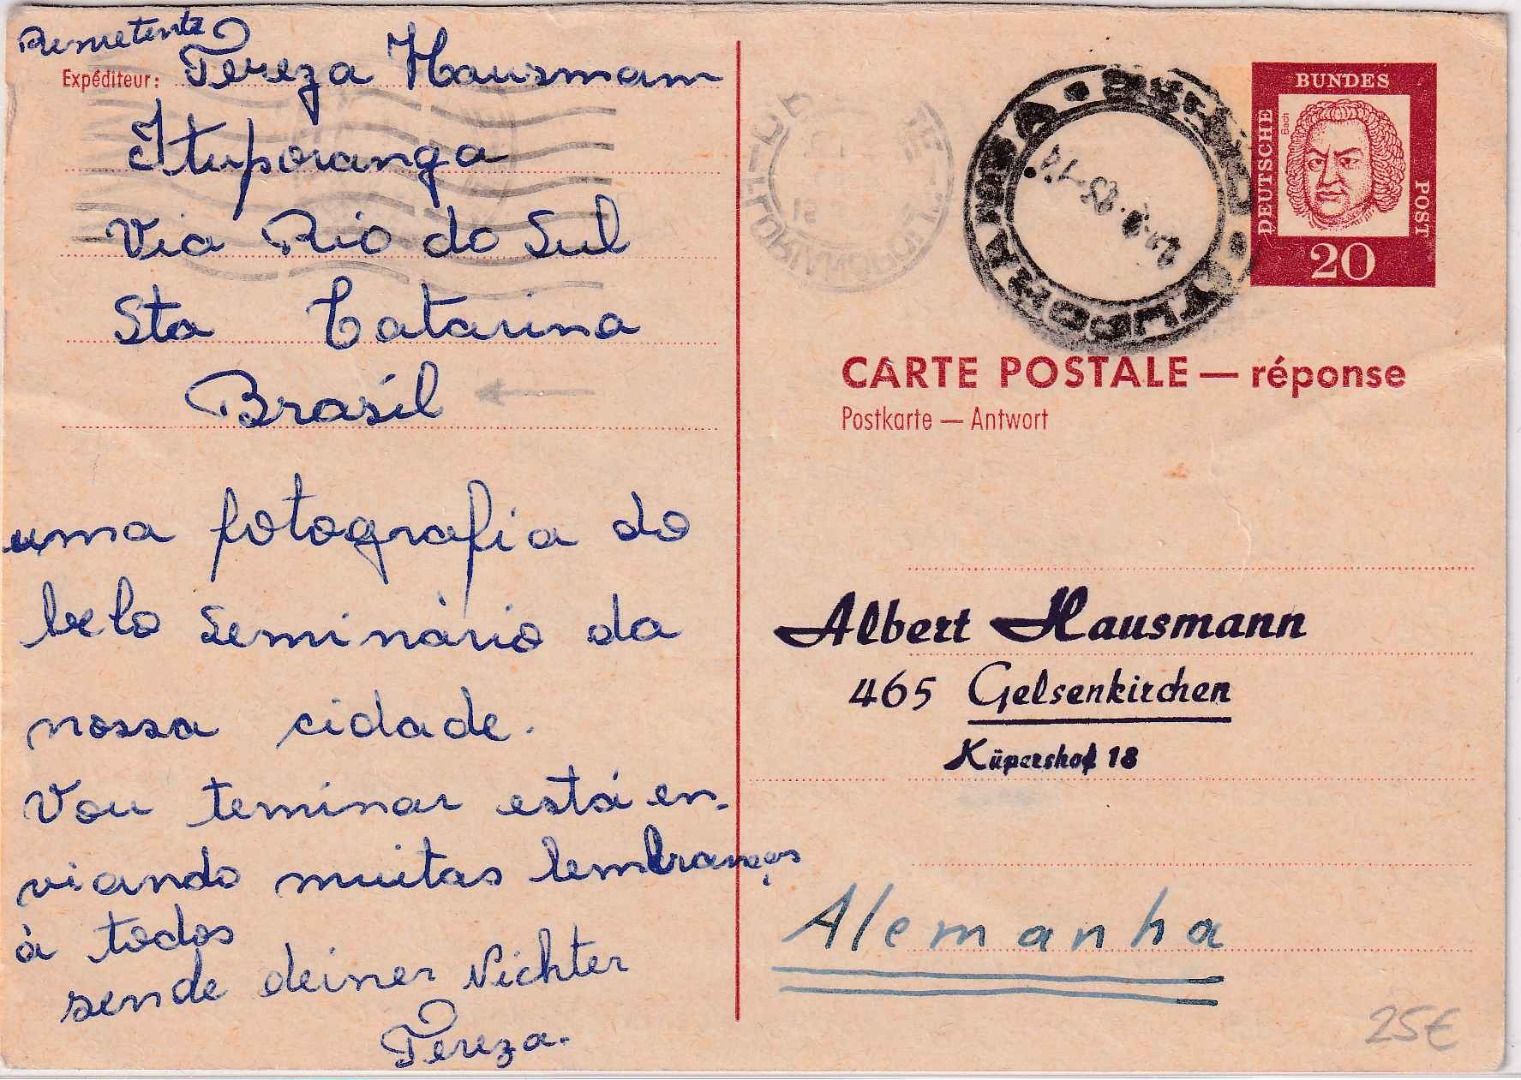 Remetente
Expéditeur: Tereza Hausmam
Ituporanga
Via Rio do Sul
Sta Catarina
Brasil
uma fotografia do
belo Seminário da
nossa cidade.
Vou teminar está en-
viando muitas lembranças
à todos
sende deiner Nichter
Tereza.
DEUTSCHE
BUNDES
POST
Bach
20
ITUPORANGA
CARTE POSTALE — réponse
Postkarte — Antwort
Albert Hausmann
465 Gelsenkirchen
Küpershof 18
Alemanha
25€